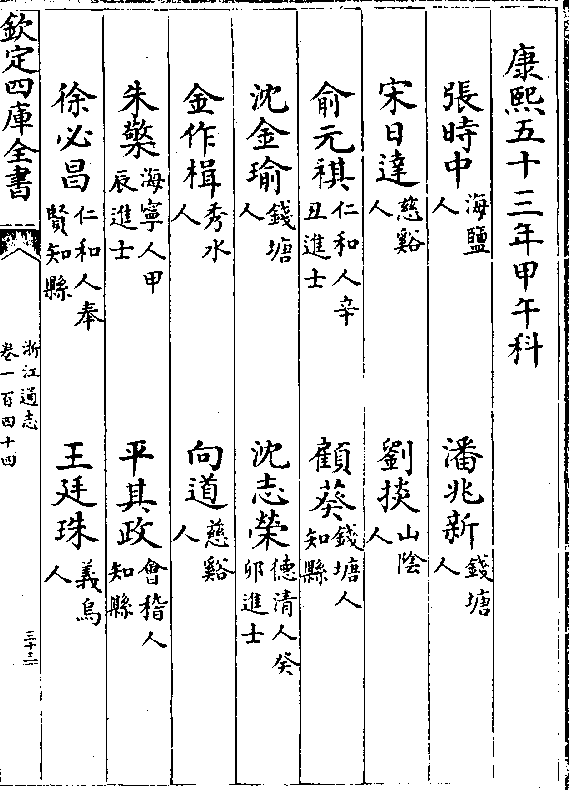 康熙五十三年甲午科
張時中海鹽人 潘兆新錢塘人
宋日達慈谿人 劉掞山陰人
俞元祺仁和人辛丑進士 顧葵錢塘人知縣
沈金瑜錢塘人 沈志榮德清人癸卯進士
金作楫秀水人 向道慈谿人
朱檠海寧人甲辰進士 平其政會稽人知縣
徐必昌仁和人奉賢知縣 王廷珠義烏人
欽定四庫全書 浙江通志卷一百四十四 三十三